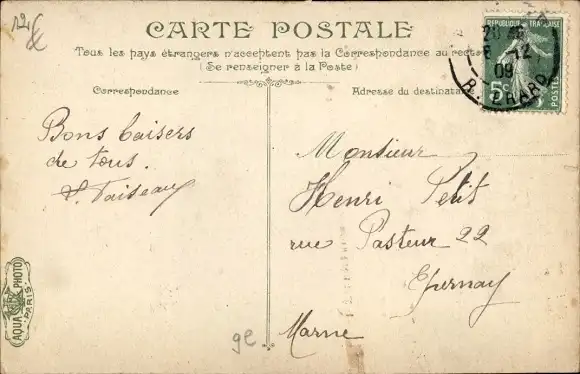 12€
CARTE POSTALE
Tous les pays étrangers n'acceptent pas la Correspondance au recto
(Se renseigner à la Poste)
Correspondance
Adresse du destinataire
REPUBLIQUE FRANÇAISE
5c
POSTES
12
09
Bons baisers
de tous.
Monsieur
Henri Petit
rue Pasteur 22
Epernay
Marne
AQUA PHOTO
PARIS